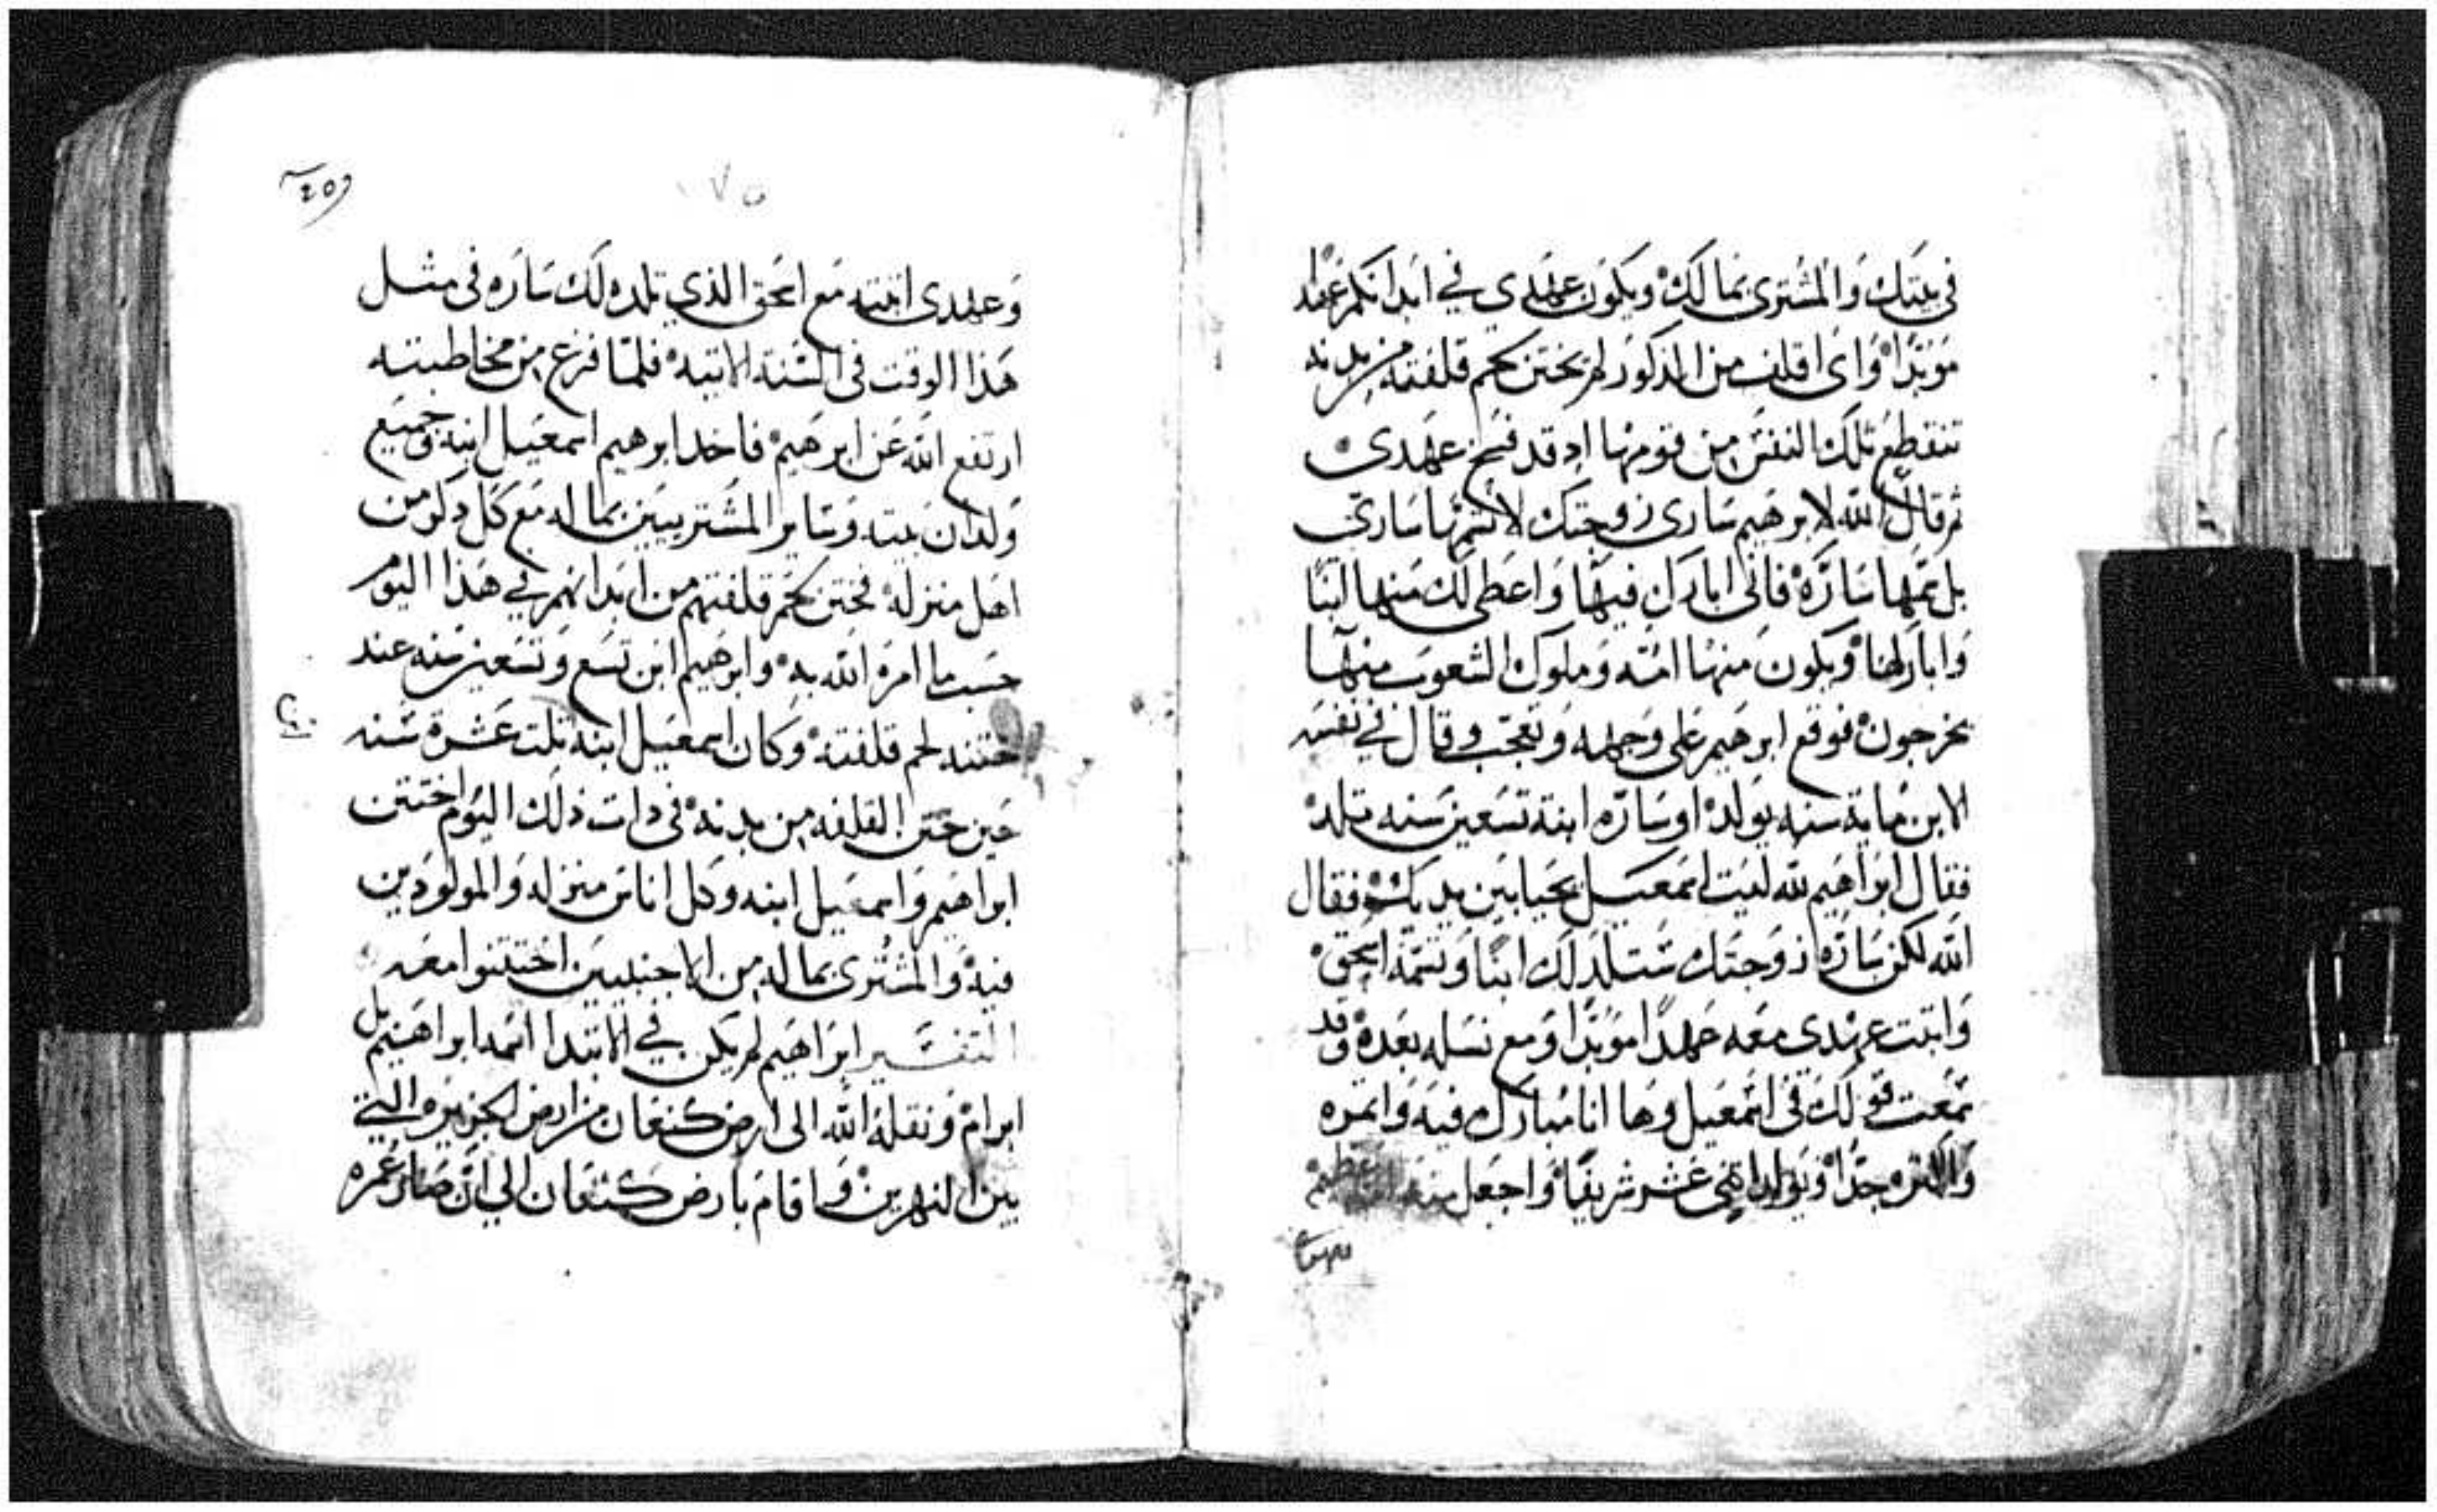 في بيتك والمشترى بمالك ويكون عهدي في ابدانكم عهدا
موبدا واي اقلف من الذكور لم يختن لحم قلفته من بدنه
تنقطع تلك النفس من قومها اد قد فسخ عهدي
ثم قال الله لابرهيم ساري زوجتك لا تسمها ساري
بل سمها سارة فاني ابارك فيها واعطى لك منها ابنا
واباركها ويكون منها امه وملوك الشعوب منها
يخرجون فوقع ابرهيم على وجهه وتعجب وقال في نفسه
الابن ماية سنه يولد او ساره ابنة تسعين سنه تلد
فقال ابراهيم لله ليت اسمعيل يحيا بين يديك فقال
الله لكن ساره زوجتك ستلد لك ابنا وتسمه اسحق
واثبت عهدي معه عهدا موبدا ومع نسله بعده وقد
سمعت قولك في اسمعيل وها انا مبارك فيه واثمره
والاثره جدا ويولد اثني عشر شريفا واجعل منه امه عظيمه
وعهدي اثبته مع اسحق الذي تلده لك ساره في مثل
هذا الوقت في السنة الاتيه فلما فرغ من مخاطبته
ارتفع الله عن ابرهيم فاخد ابرهيم اسمعيل ابنه وجميع
ولدان بيته وساير المشتريين بماله مع كل دكر من
اهل منزله فختن لحم قلفتهم من ابدانهم في هذا اليوم
حسب ما امره الله به وابرهيم ابن تسع وتسعين سنه عند
ختنه لحم قلفته وكان اسمعيل ابنه تلت عشرة سنه
حين ختن القلفه من بدنه في دات ذلك اليوم اختتن
ابراهيم واسمعيل ابنه وكل اناس منزله والمولودين
فيه والمشترى بماله من الاجنبيين اختتنوا معه
التفسير ابراهيم لم يكن في الابتدا اسمه ابراهيم بل
ابرام ونقله الله الى ارض كنعان من ارض الجزيره التي
بين النهرين واقام بارض كنعان الي ان صار عمره